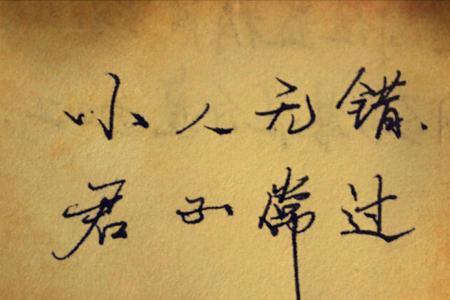 小人无错、
君子常过